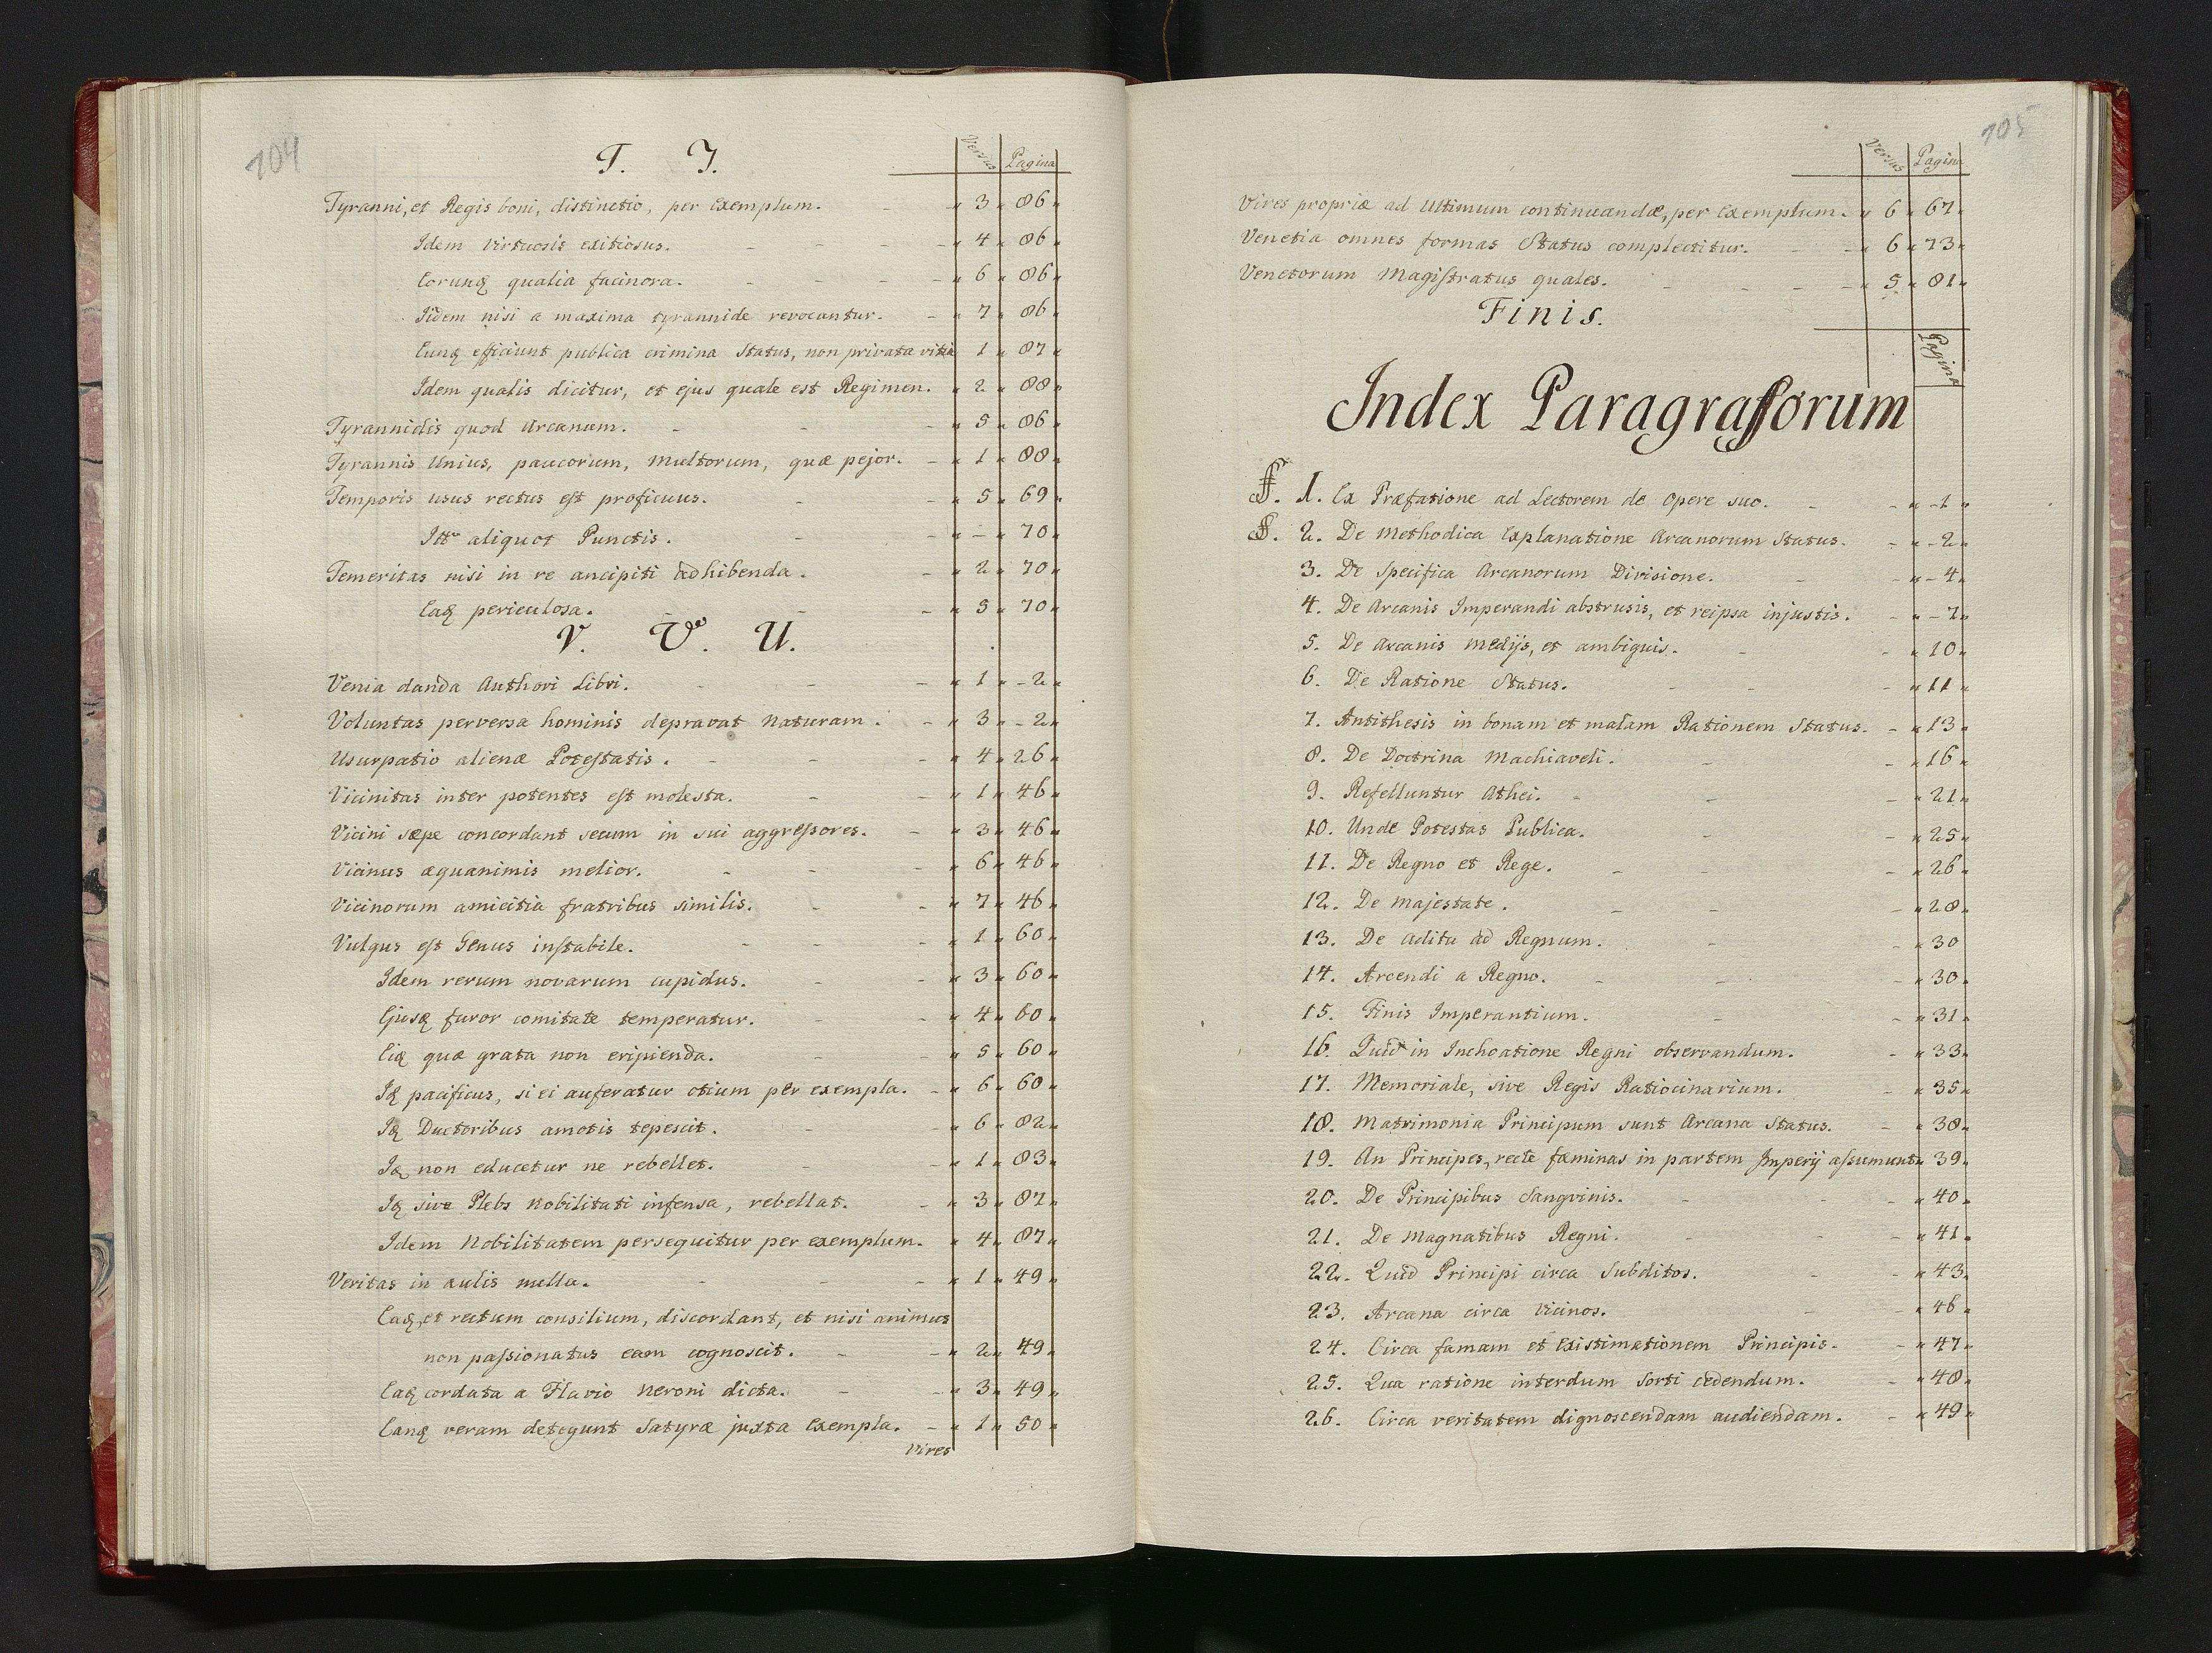 104
T. T.
Versus Pagina
Tyranni, et Regis boni, distinctio, per Exemplum. - " 3 " 86 "
Idem virtuosis exitiosus. - - - - " 4 " 86 "
Eorunq qualia facinora. - - - - " 6 " 86 "
Iidem nisi a maxima tyrannide revocantur. - " 7 " 86 "
Eunq efficiunt publica crimina Status, non privata vitia 1 " 87 "
Idem qualis dicitur, et ejus quale est Regimen. " 2 " 88 "
Tyrannidis quod Arcanum. - - - " 5 " 86 "
Tyrannis Unius, paucorum, Multorum, quæ pejor. - " 1 " 88 "
Temporis usus rectus eſt proficuus. - - " 5 " 69 "
Itto aliquot Punctis. - - " - " 70 "
Temeritas nisi in re ancipiti adhibenda. - " 2 " 70 "
Eaq periculosa. - - - " 5 " 70 "
V. V. U.
Venia danda Authori Libri. - - - " 1 " - 2 "
Voluntas perversa hominis depravat Naturam. - " 3 " - 2 "
Usurpatio alienæ Poteſtatis. - - - " 4 " 26 "
Vicinitas inter potentes eſt molesta. - - " 1 " 46 "
Vicini sæpe concordant secum in sui aggreſsores. - " 3 " 46 "
Vicinus æquanimis melior. - - - " 6 " 46 "
Vicinorum amicitia fratribus similis. - - " 7 " 46 "
Vulgus eſt Genus inſtabile. - - - " 1 " 60 "
Idem rerum novarum cupidus. - - " 3 " 60 "
Ejusq furor comitate temperatur. - - " 4 " 60 "
Eiq quæ grata non eripienda. - - " 5 " 60 "
Iq pacificus, si ei auferatur otium per exempla. - " 6 " 60 "
Iq Ductoribus amotis tepescit. - - " 6 " 82 "
Iq non educetur ne rebellet. - - " 1 " 83 "
Iq sive Plebs Nobilitati infensa, rebellat. - " 3 " 87 "
Idem Nobilitatem persequitur per exemplum. " 4 " 87 "
Veritas in aulis nulla. - - - " 1 " 49 "
Eaq, et rectum consilium, discordant, et nisi animus
non paſsionatus eam cognoscit. - - " 2 " 49 "
Eaq cordata a Flavio Neroni dicta. - - " 3 " 49 "
Eanq veram detegunt Satyræ juxta Exempla. - " 1 " 50 "
Vires
105
Versus Pagina
Vires propriæ ad Ultimum continuandæ, per Exemplum. " 6 " 67 "
Venetia omnes formas Status complectitur. - - " 6 " 73 "
Venetorum Magiſtratus quales. - - - - " 5 " 81 "
Finis.
Pagina
Index Paragrafforum
§. 1. Ex Præfatione ad Lectorem de Opere suo. - - " - 1 "
§. 2. De Methodica Explanatione Arcanorum Status. - " - 2 "
3. De Specifica Arcanorum Divisione. - - " - 4 "
4. De Arcanis Imperandi abstrusis, et reipsa injustis. - " - 7 "
5. De Arcanis Medijs, et ambiguis. - - " 10 "
6. De Ratione Status. - - - " 11 "
7. Antithesis in bonam et malam Rationem Status. - " 13 "
8. De Doctrina Machiaveli. - - " 16 "
9. Refelluntur Athei. - - - " 21 "
10. Unde Potestas Publica. - - " 25 "
11. De Regno et Rege. - - - " 26 "
12. De Majestate. - - - " 28 "
13. De Aditu ad Regnum. - - " 30
14. Arcendi a Regno. - - - " 30 "
15. Finis Imperantium. - - " 31 "
16. Quid in Inchoatione Regni observandum. - " 33 "
17. Memoriale, sive Regis Ratiocinarium. - " 35 "
18. Matrimonia Principum sunt Arcana Status. - " 38 "
19. An Principes, recte fæminas in partem Imperij aſsumunt " 39 "
20. De Principibus Sangvinis. - - - " 40 "
21. De Magnatibus Regni. - - - " 41 "
22. Quid Principi circa Subditos. - - " 43 "
23. Arcana circa Vicinos. - - " 46 "
24. Circa famam et Existimationem Principis. - " 47 "
25. Qua ratione interdum Sorti cedendum. - " 48 "
26. Circa veritatem dignoscendam audiendam. - " 49 "